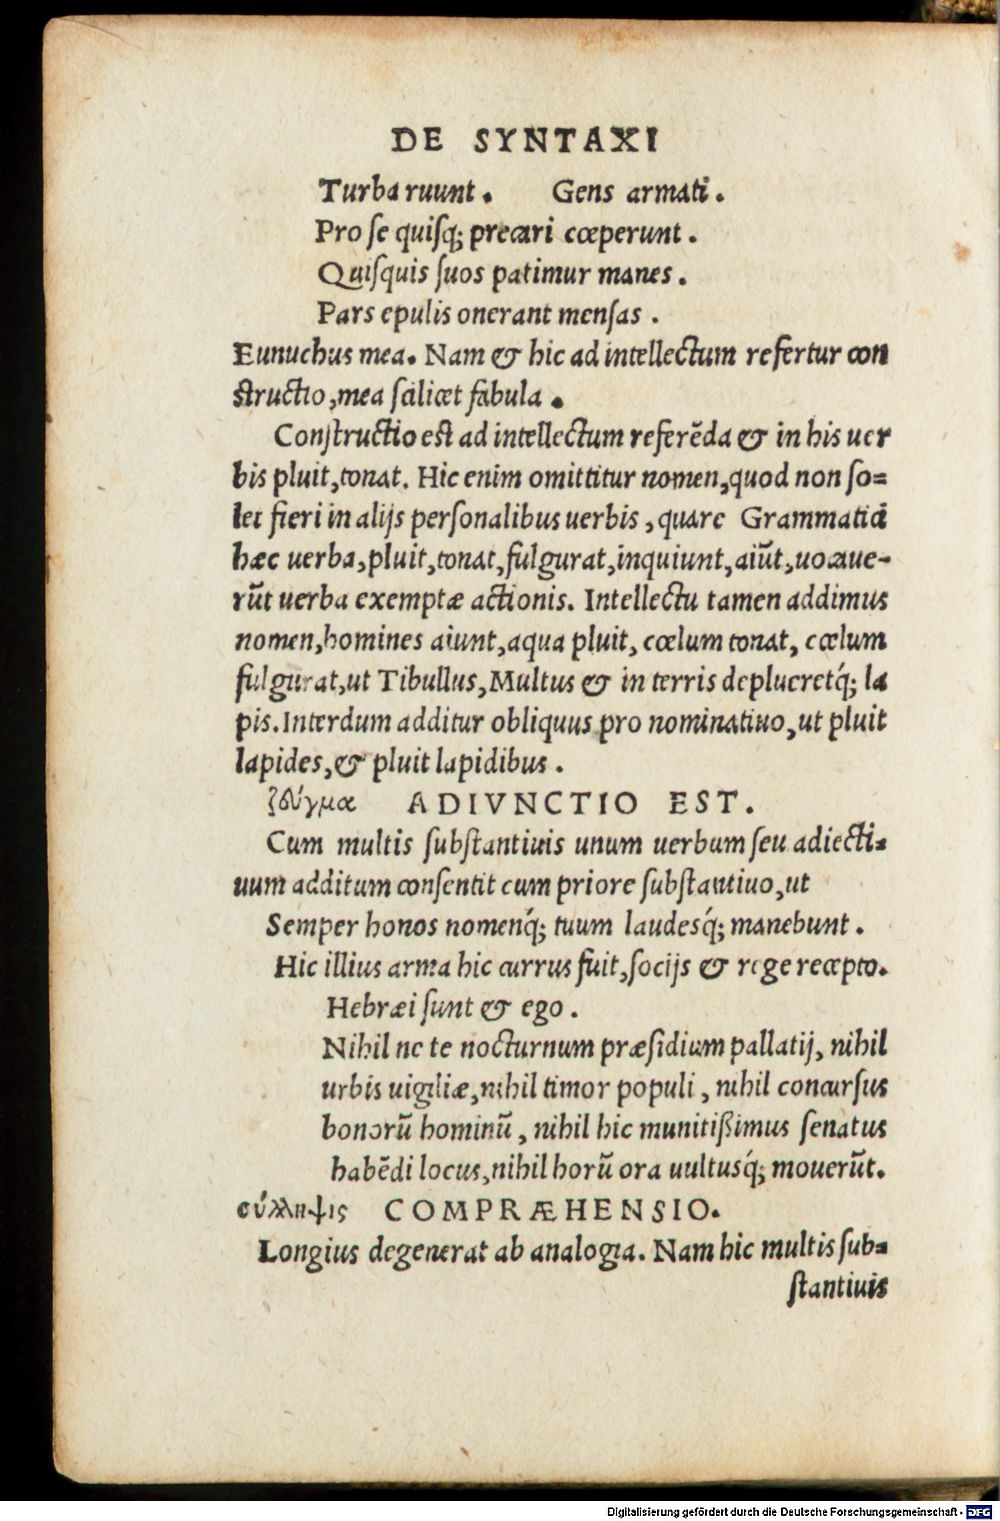 DE SYNTAXI
Turba ruunt. Gens armati.
Pro se quisq; precari cœperunt.
Quiſquis ſuos patimur manes.
Pars epulis onerant menſas.
Eunuchus mea. Nam & hic ad intellectum refertur con
ſtructio, mea ſcilicet fabula.
Conſtructio eſt ad intellectum referēda & in his uer
bis pluit, tonat. Hic enim omittitur nomen, quod non ſo=
let fieri in alijs perſonalibus uerbis, quare Grammatici
hæc uerba, pluit, tonat, fulgurat, inquiunt, aiūt, uocaue-
rūt uerba exemptæ actionis. Intellectu tamen addimus
nomen, homines aiunt, aqua pluit, cœlum tonat, cœlum
fulgurat, ut Tibullus, Multus & in terris deplueretq́; la
pis. Interdum additur obliquus pro nominatiuo, ut pluit
lapides, & pluit lapidibus.
ζεύγμα ADIVNCTIO EST.
Cum multis ſubſtantiuis unum uerbum ſeu adiecti=
uum additum conſentit cum priore ſubſtantiuo, ut
Semper honos nomenq́; tuum laudesq́; manebunt.
Hic illius arma hic currus fuit, ſocijs & rege recepto.
Hebræi ſunt & ego.
Nihil ne te nocturnum præſidium pallatij, nihil
urbis uigiliæ, nihil timor populi, nihil concurſus
bonorū hominū, nihil hic munitißimus ſenatus
habēdi locus, nihil horū ora uultusq́; mouerūt.
σύλληψις COMPRÆHENSIO.
Longius degenerat ab analogia. Nam hic multis ſub=
ſtantiuis
Digitalisierung gefördert durch die Deutsche Forschungsgemeinschaft - DFG